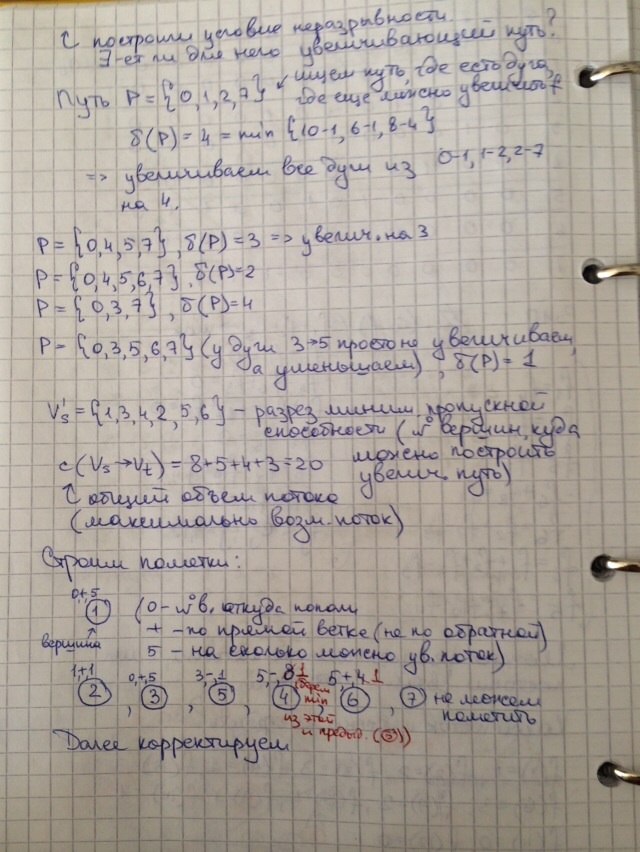 ↑ построили условие неразрывности.
∃-ет ли для него увеличивающий путь?
Путь P = {0,1,2,7} ↙ ищем путь, где есть дуга,
где еще можно увеличить f
δ(P) = 4 = min {10-1, 6-1, 8-4}
=> увеличиваем все дуги из 0-1, 1-2, 2-7
на 4.
P = {0,4,5,7}, δ(P) = 3 => увелич. на 3
P = {0,4,5,6,7}, δ(P)=2
P = {0,3,7}, δ(P)=4
P = {0,3,5,6,7} (у дуги 3→5 просто не увеличиваем,
а уменьшаем), δ(P) = 1
V's = {1,3,4,2,5,6} – разрез миним. пропускной
способности (№ вершин, куда
c(Vs→Vt) = 8+5+4+3=20 можно построить
увелич. путь)
↑ общий объем потока
(максимально возм. поток)
Строим пометки:
0,+,5
① (0 – № в, откуда попали
вершина + – по прямой ветке (не по обратной)
5 – на сколько можно ув. поток)
1,+,1 0,+,5 3,-,1 5,-,8 1 5,+,4 1
②, ③, ⑤, ④, ⑥, ⑦ не можем
пометить
берем
min
из этой
и предыд. (⑤))
Далее корректируем